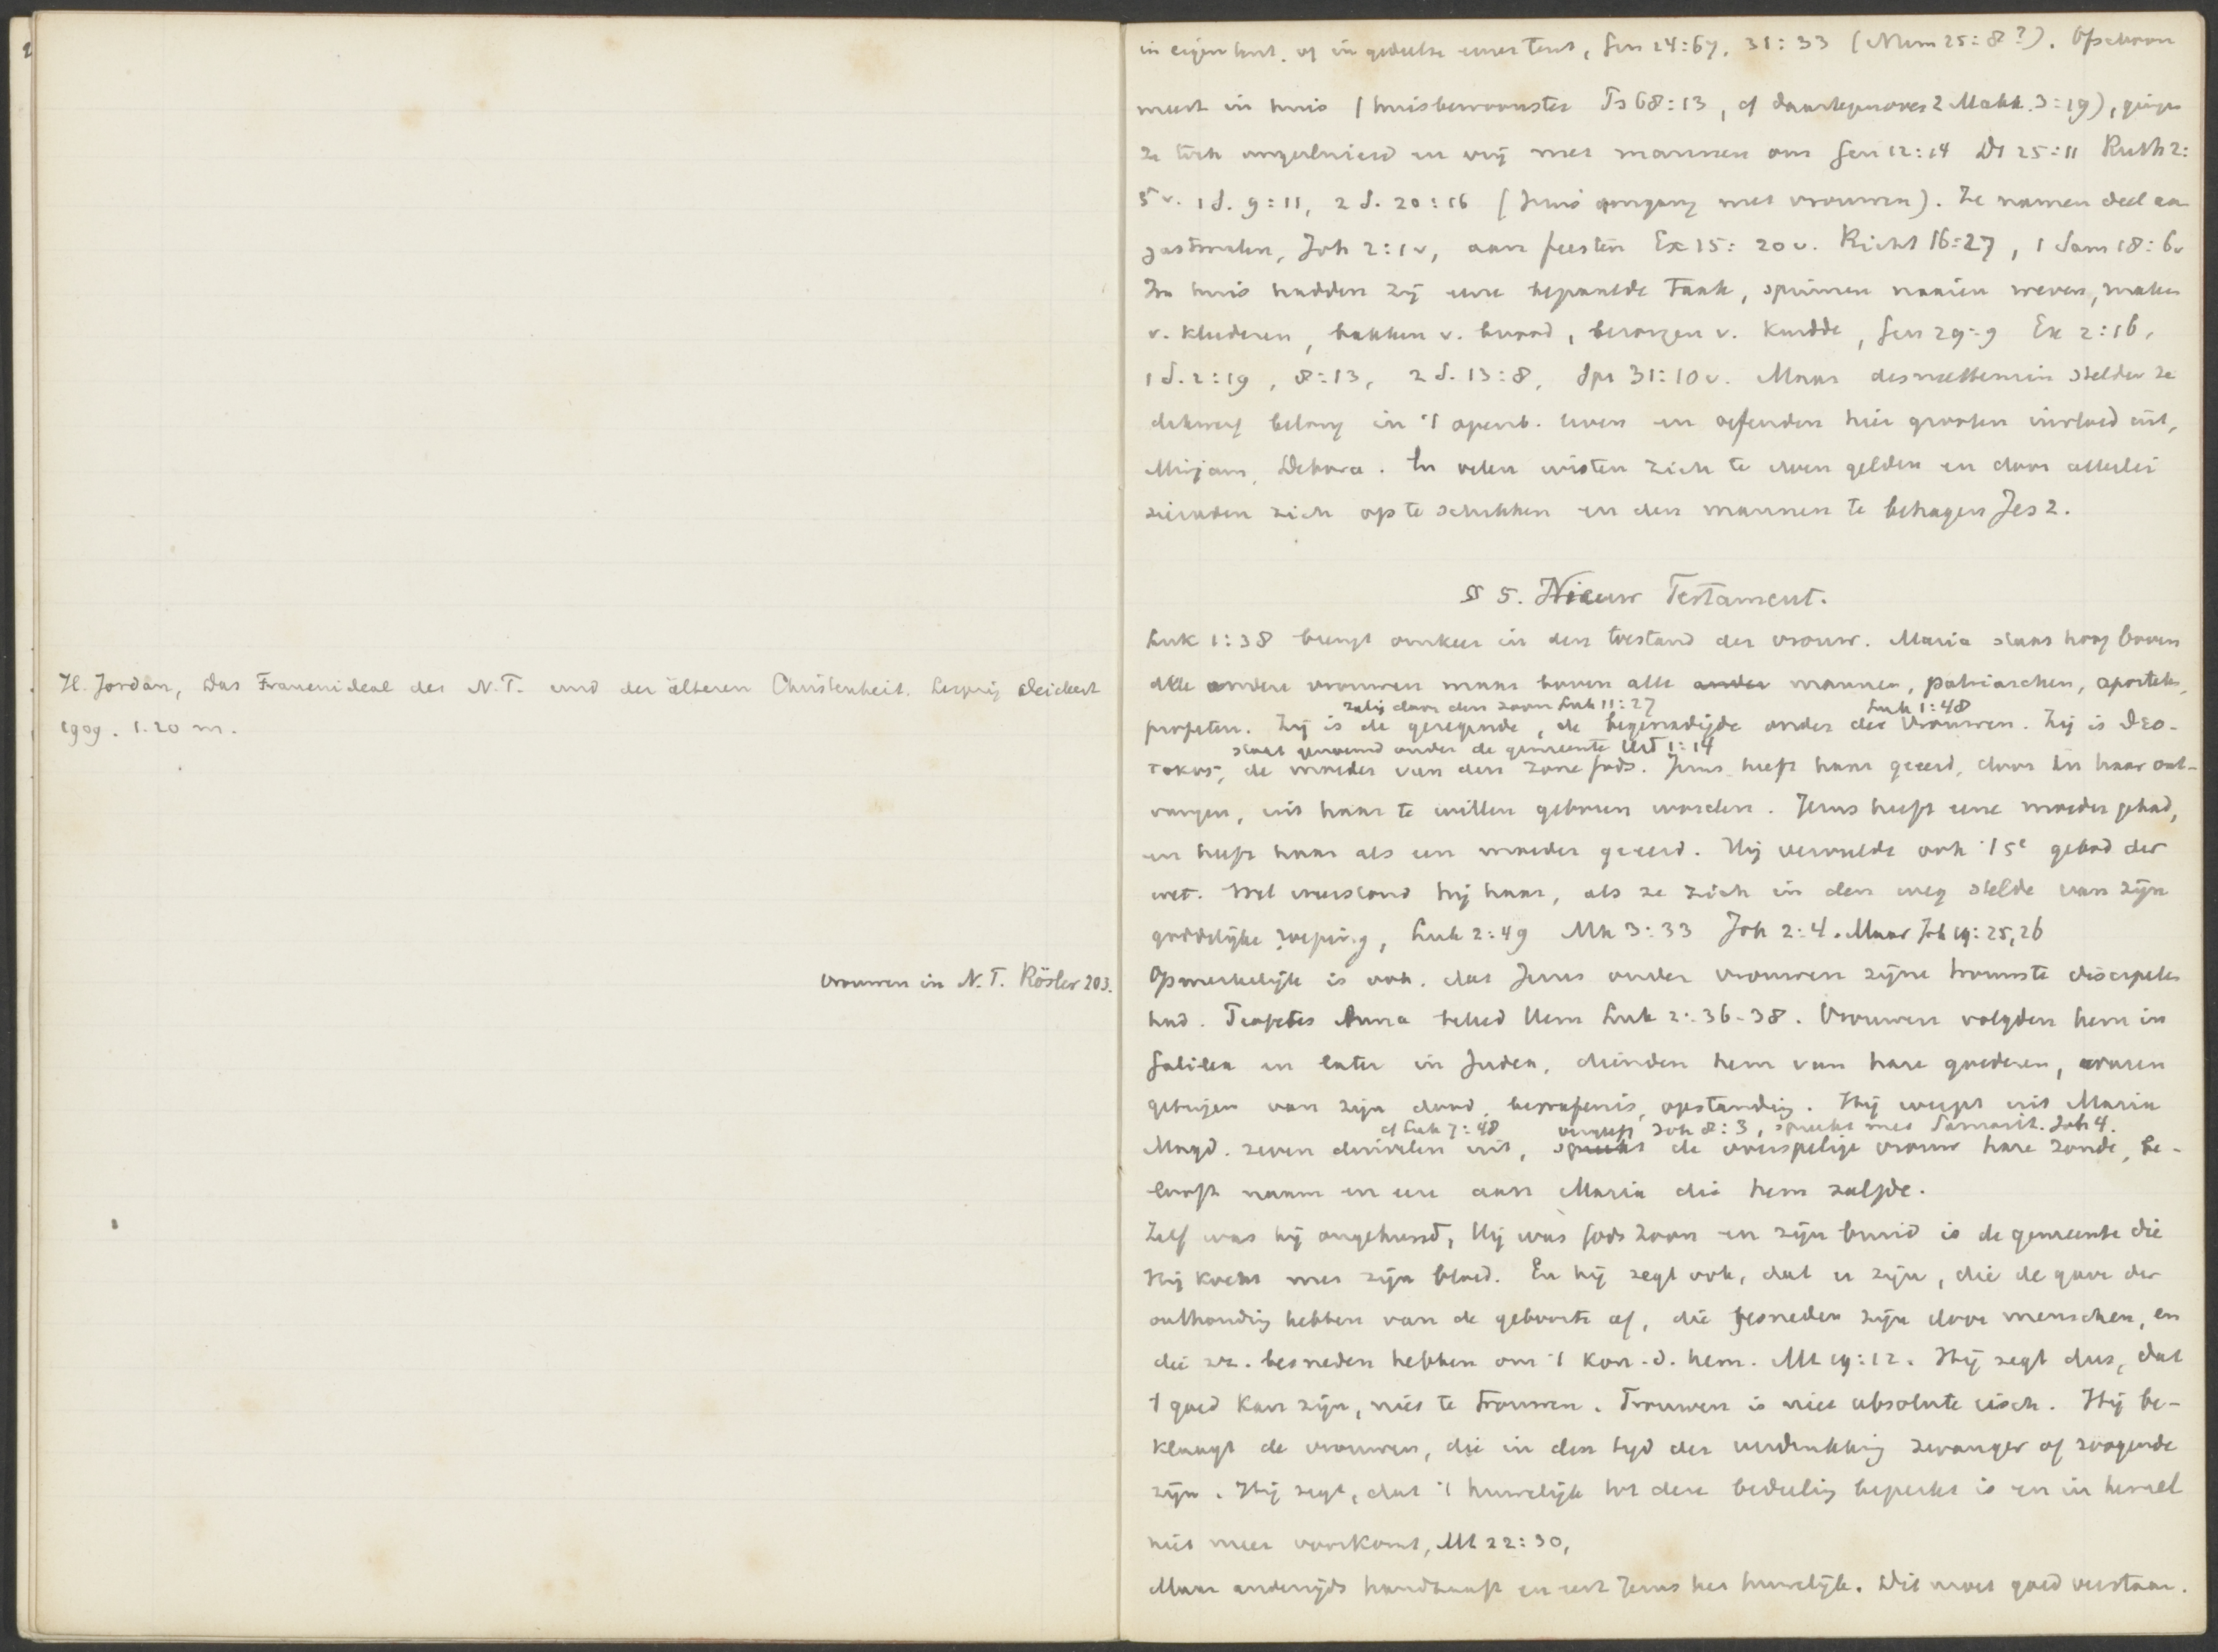 H. Jordan, Das Frauenideal des N.T. und der älteren Christenheit. Leipzig Deichert
1909. 1.20 m.
vrouwen in N.T. Rösler 203.
in eigen tent, of in gedeelte eener tent, Gen 24:67, 31:33 (Num 25:8?). Ofschoon
meest in huis (huisbewoonster Ps 68:13, cf daartegenover 2 Makk. 3:19), gingen
ze toch ongesluierd en vrij met mannen om Gen 12:14 Dt 25:11 Ruth 2:
5v. 1 S. 9:11, 2 S. 20:16 (Jezus omgang met vrouwen). Ze namen deel aan
gastmalen, Joh 2:1v, aan feesten Ex 15:20v. Richt 16:27, 1 Sam 18:6v
In huis hadden zij eene bepaalde taak, spinnen naaien weven, maken
v. kleederen, bakken v. brood, bezorgen v. kudde, Gen 29:9 Ex 2:16,
1 S. 2:19, 8:13, 2 S. 13:8, Spr 31:10v. Maar desniettemin stelden ze
dikwerf belang in 't openb. leven en oefenden hier grooten invloed uit,
Mirjam, Debora. En velen wisten zich te doen gelden en door allerlei
sieraden zich op te schikken en den mannen te behagen Jes 2.
§ 5. Nieuw Testament.
Luk 1:38 brengt omkeer in den toestand der vrouw. Maria staat hoog boven
alle andere vrouwen maar boven alle ander mannen, patriarchen, apostelen,
zalig door den zoon Luk 11:27 Luk 1:48
profeten. Zij is de gezegende, de begenadigde onder de vrouwen. Zij is Θεο-
staat genoemd onder de gemeente Hd 1:14
τοκος, de moeder van den zone Gods. Jezus heeft haar geëerd, door in haar ont-
vangen, uit haar te willen geboren worden. Jezus heeft eene moeder gehad,
en heeft haar als een moeder geëerd. Hij vervulde ook 't 5e gebod der
wet. Wel weerstond hij haar, als ze zich in den weg stelde van zijn
goddelijke roeping, Luk 2:49 Mk 3:33 Joh 2:4. Maar Joh 19:25,26
Opmerkelijk is ook, dat Jezus onder vrouwen zijne trouwste discipelen
had. Profetes Anna beleed Hem Luk 2:36-38. Vrouwen volgden hem in
Galilea en later in Judea, dienden hem van hare goederen, waren
getuigen van zijn dood, begrafenis, opstanding. Hij werpt uit Maria
cf Luk 7:48 vergeeft Joh 8:3, spreekt met Samarit. Joh 4.
Magd. zeven duivelen uit, spreekt de overspelige vrouw hare zonde, be-
looft naam en eer aan Maria die hem zalfde.
Zelf was hij ongehuwd, Hij was Gods Zoon en zijn bruid is de gemeente die
Hij kocht met zijn bloed. En hij zegt ook, dat er zijn, die de gave der
onthouding hebben van de geboorte af, die gesneden zijn door menschen, en
die zz. besneden hebben om 't kon. d. hem. Mt 19:12. Hij zegt dus, dat
't goed kan zijn, niet te trouwen. Trouwen is niet absolute eisch. Hij be-
klaagt de vrouwen, die in den tijd der verdrukking zwanger of zoogende
zijn. Hij zegt, dat 't huwelijk tot deze bedeeling beperkt is en in hemel
niet meer voorkomt, Mt 22:30,
Maar anderzijds handhaaft en eert Jezus het huwelijk. Dit moet goed verstaan.